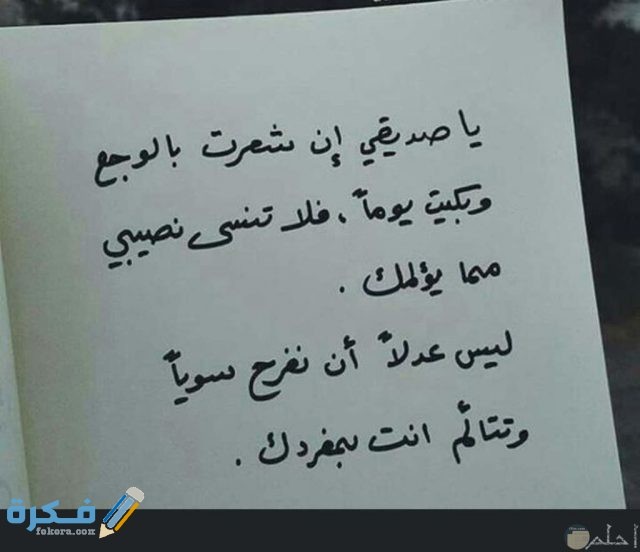 يا صديقي إن شعرت بالوجع
وبكيت يوماً، فلا تنسى نصيبي
مما يؤلمك.
ليس عدلاً أن نفرح سوياً
وتتألّم انت بمفردك.
فكرة
fekera.com
أحلم